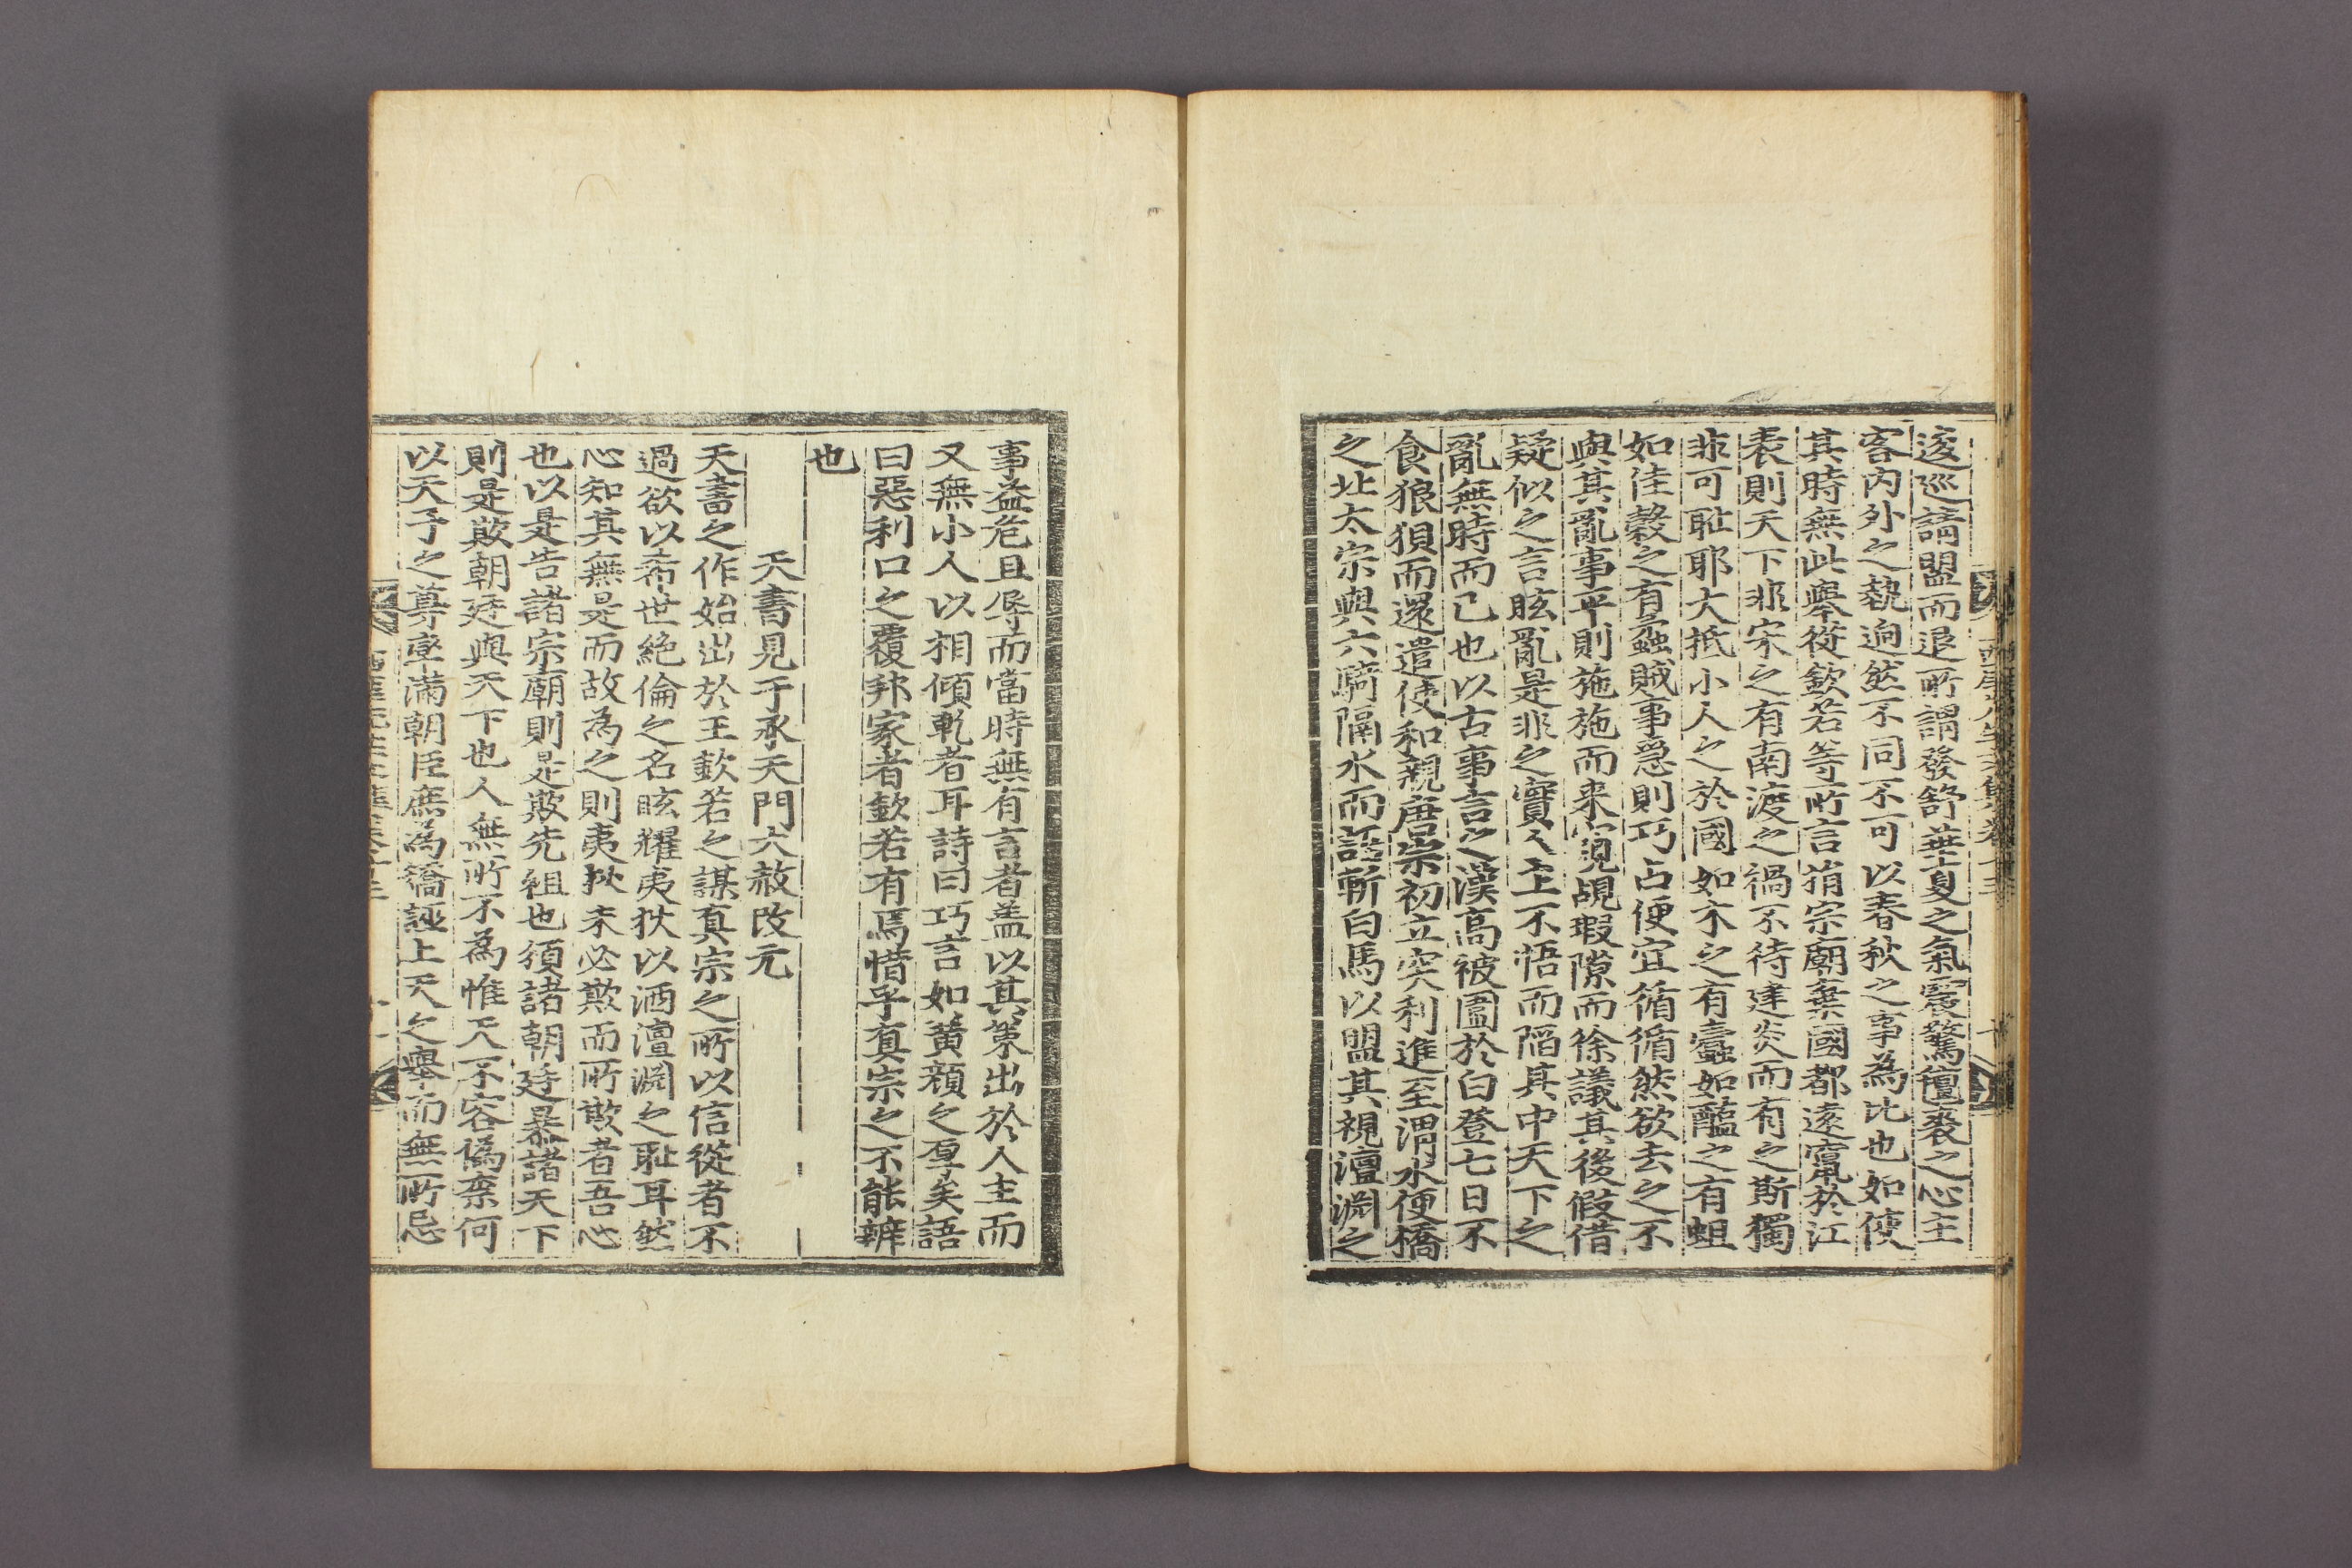 逡巡請盟而退所謂發舒華夏之氣震驚氊裘之心主
客內外之埶逈然不同不可以春秋之事為比也如使
其時無此擧從欽若等所言捐宗廟棄國都遠竄於江
表則天下非宋之有南渡之禍不待建炎而有之斯獨
非可耻耶大抵小人之於國如木之有蠹如醢之有蛆
如佳穀之有蟊賊事急則巧占便宜循循然欲去之不
與其亂事平則施施而来窺覘瑕隙而徐議其後假借
疑似之言眩亂是非之實人主不悟而陷其中天下之
亂無時而已也以古事言之漢高被圍於白登七日不
食狼狽而還遣使和親唐宗初立突利進至渭水便橋
之北太宗與六騎隔水而語斬白馬以盟其視澶淵之
事益危且辱而當時無有言者盖以其策出於人主而
又無小人以相傾軋者耳詩曰巧言如簧顔之厚矣語
曰惡利口之覆邦家者欽若有焉惜乎真宗之不能辨
也
天書見于承天門大赦改元
天書之作始出於王欽若之謀真宗之所以信從者不
過欲以希世絶倫之名眩耀夷狄以洒澶淵之耻耳然
心知其無是而故為之則夷狄未必欺而所欺者吾心
也以是告諸宗廟則是欺先祖也須諸朝廷暴諸天下
則是欺朝廷與天下也人無所不為惟天不容僞柰何
以天子之尊率滿朝臣庶為矯誣上天之擧而無所忌